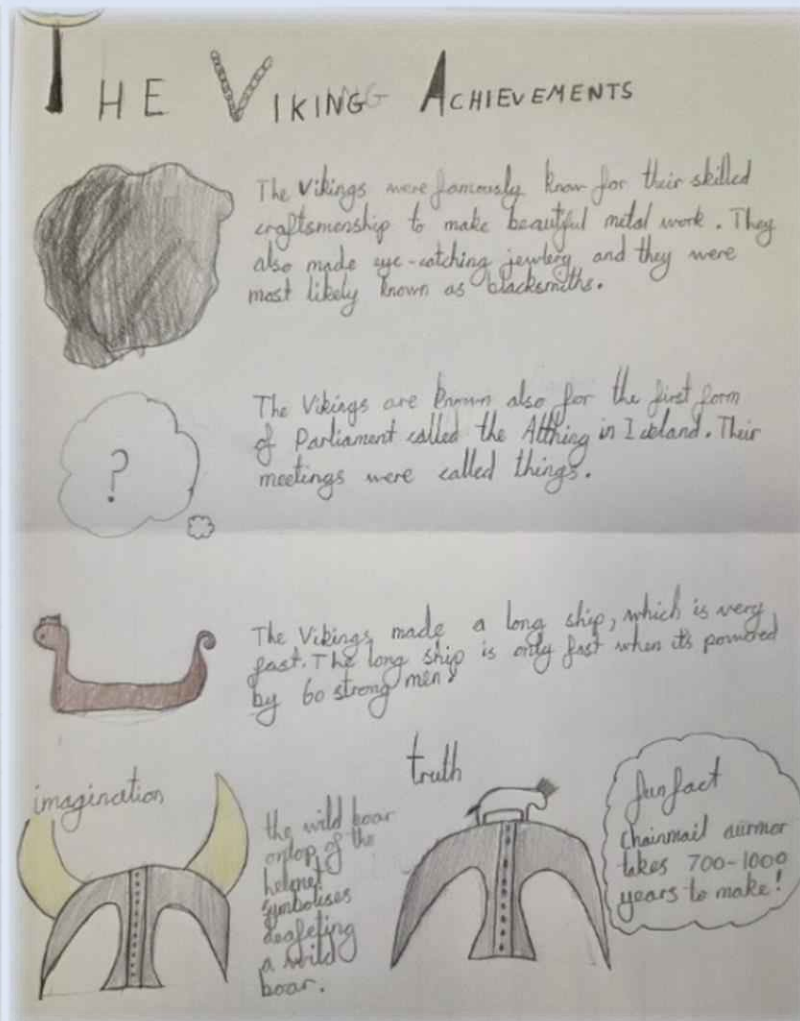 THE VIKING ACHIEVEMENTS
The Vikings were famously know for their skilled
craftsmenship to make beautiful metal work. They
also made eye-catching jewlery and they were
most likely known as blacksmiths.
?
The Vikings are known also for the first form
of Parliament called the Althing in Iceland. Their
meetings were called things.
The Vikings made a long ship, which is very
fast. The long ship is only fast when it's powered
by 60 strong men!
imagination
the wild boar
ontop of the
helmet
symbolises
deafeting
a wild
boar.
truth
fun fact
chainmail aurmor
takes 700-1000
years to make!